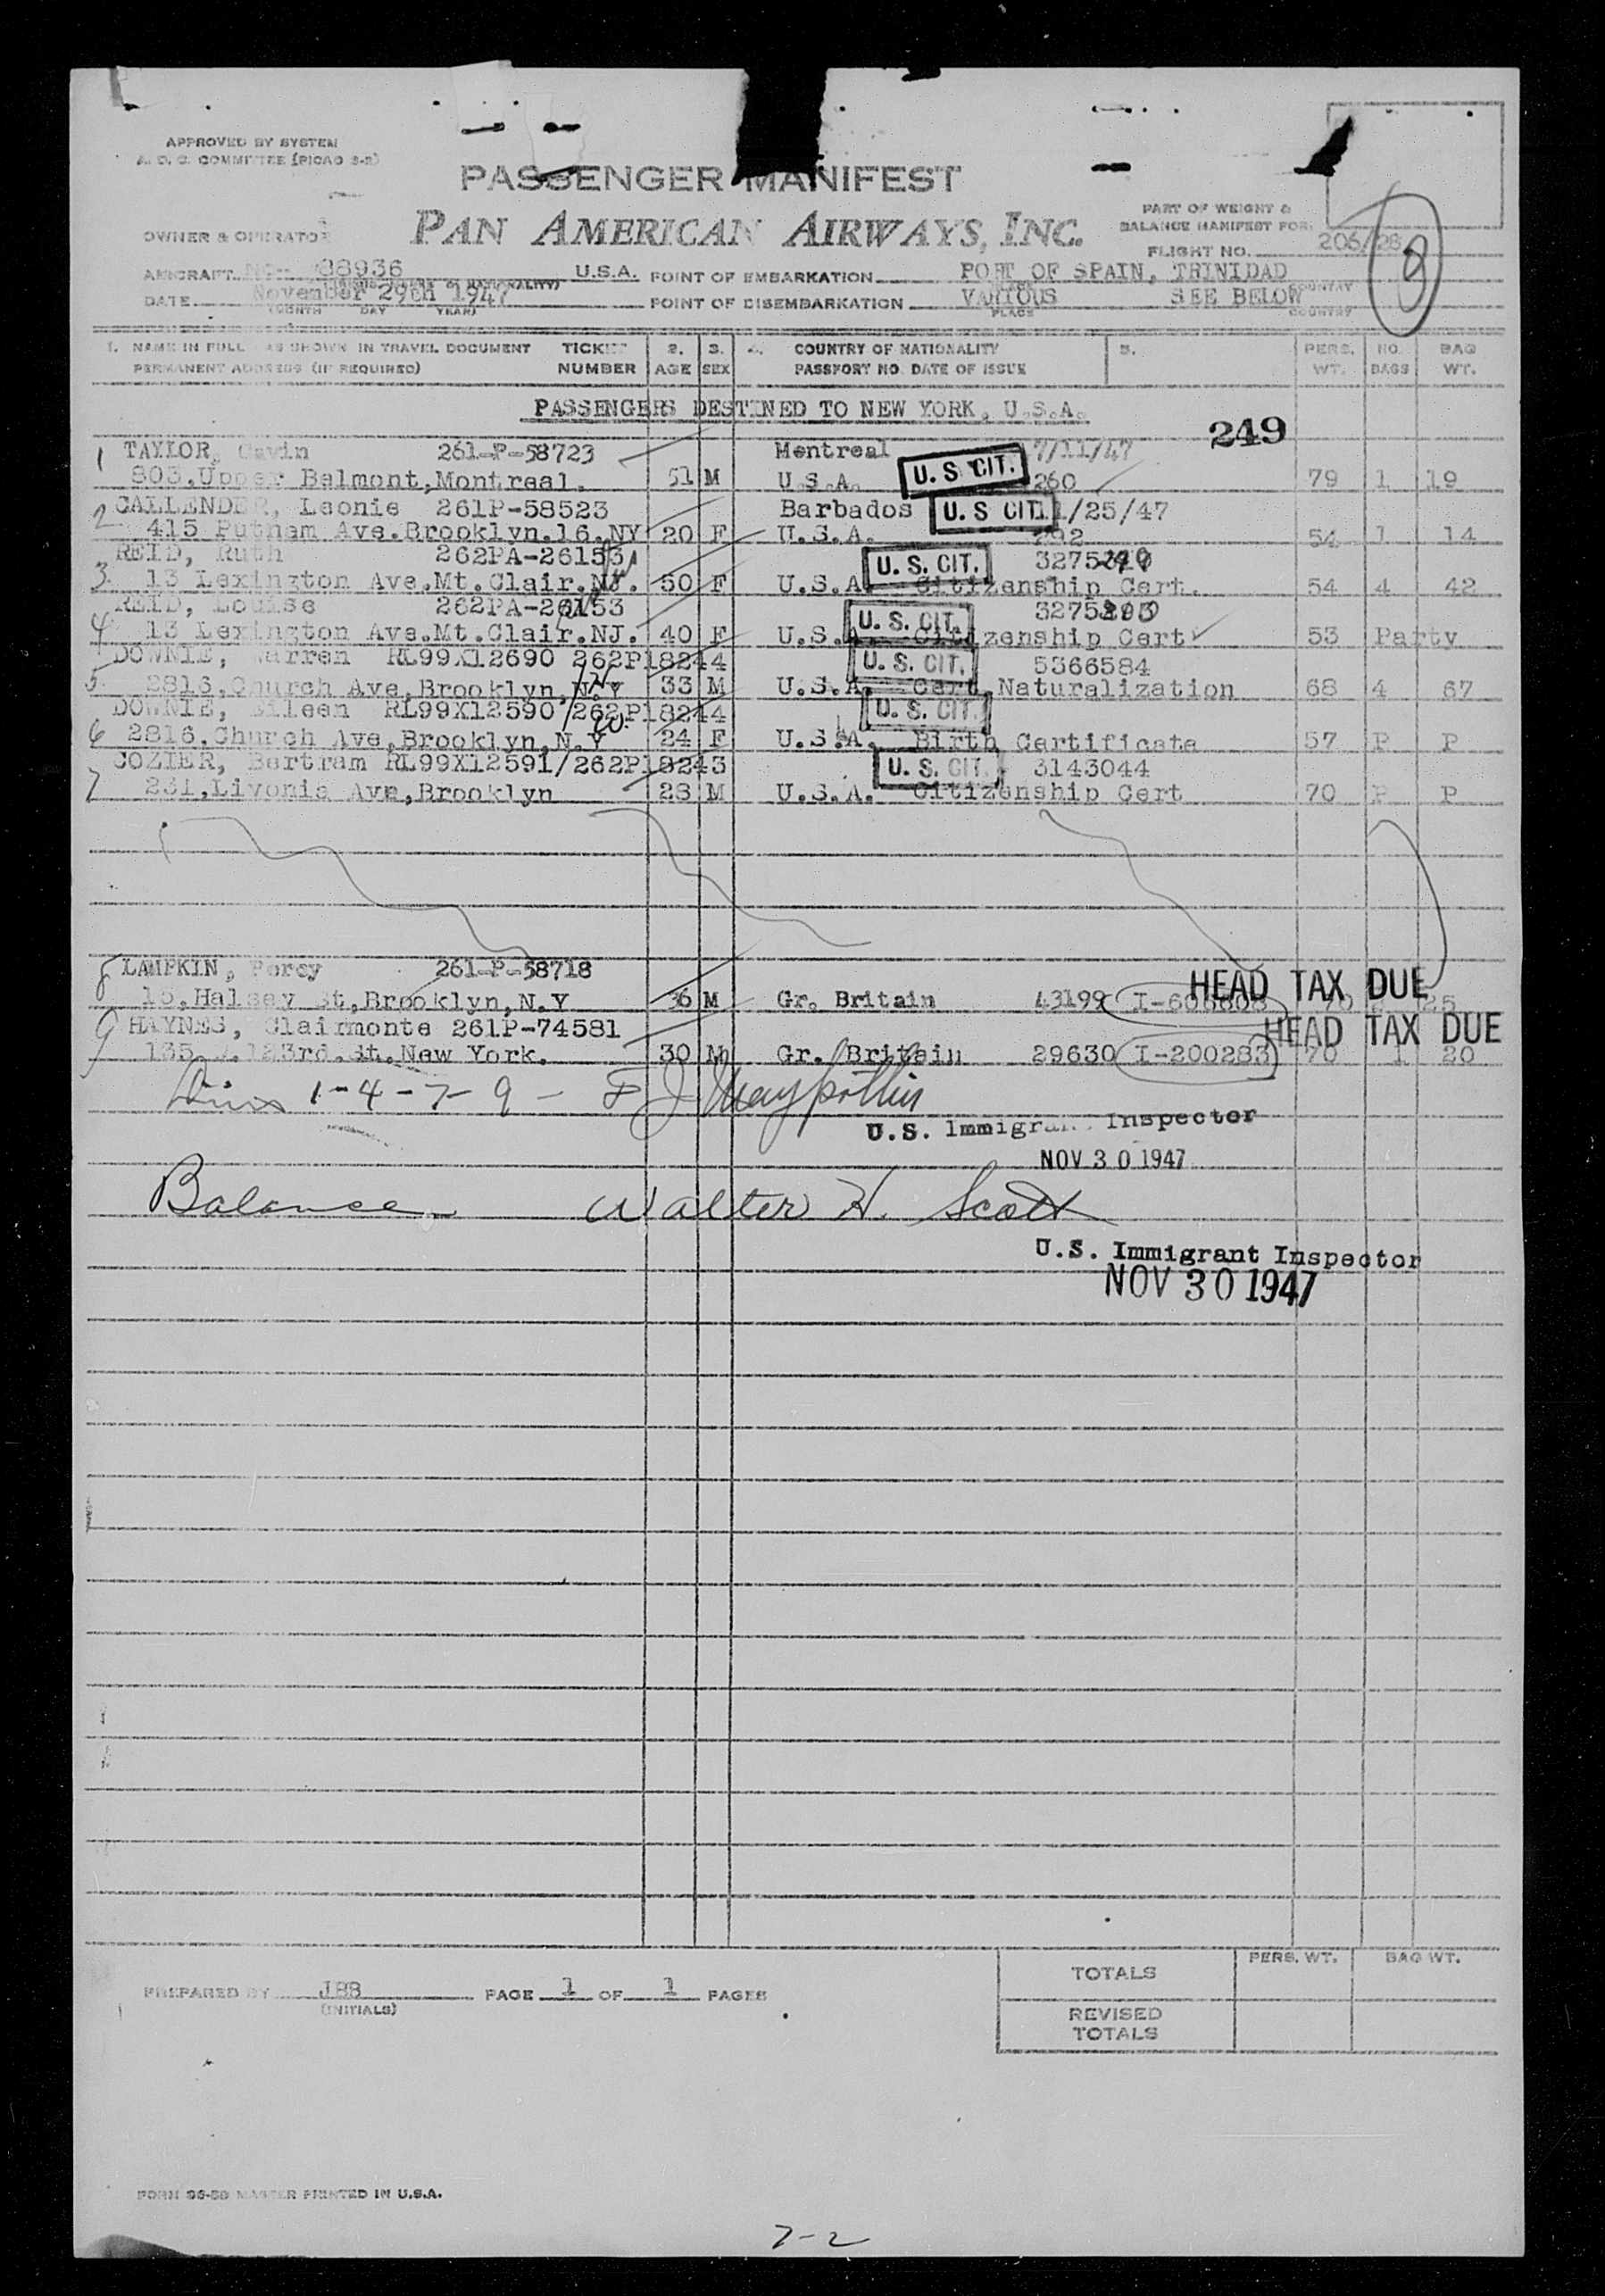 APPROVED BY SYSTEM
A. O. C. COMMITTEE (PICAO S-2)
PASSENGER MANIFEST
OWNER & OPERATOR
PAN AMERICAN AIRWAYS, INC.
PART OF WEIGHT &
BALANCE MANIFEST FOR:
FLIGHT NO. 205/28
8
AIRCRAFT 88936 U.S.A. POINT OF EMBARKATION PORT OF SPAIN, TRINIDAD
DATE November 29th 1947 POINT OF DISEMBARKATION VARIOUS SEE BELOW
(MONTH DAY YEAR) PLACE COUNTRY
1. NAME IN FULL AS SHOWN IN TRAVEL DOCUMENT TICKET 2. 3. 4. COUNTRY OF NATIONALITY 5. PERS. NO. BAG
PERMANENT ADDRESS (IF REQUIRED) NUMBER AGE SEX PASSPORT NO. DATE OF ISSUE WT. BAGS WT.
PASSENGERS DESTINED TO NEW YORK, U.S.A.
249
1 TAYLOR, Gavin 261-P-58723 Montreal 7/11/47
803,Upper Belmont,Montreal. 51 M U.S.A. U.S. CIT. 260 79 1 19
2 CALLENDER, Leonie 261P-58523 Barbados U.S CIT. 11/25/47
415 Putnam Ave.Brooklyn.16.NY 20 F U.S.A. 292 54 1 14
REID, Ruth 262PA-26153 U.S. CIT.
3 13 Lexington Ave.Mt.Clair.NJ. 50 F U.S.A. Citizenship Cert. 54 4 42
REID, Louise 262PA-26153 U.S. CIT.
4 13 Lexington Ave.Mt.Clair.NJ. 40 F U.S.A. Citizenship Cert 53 Party
DOWNIE, Warren RL99X12690 262P18244 U.S. CIT. 5366584
5 2816,Church Ave,Brooklyn,N.Y 33 M U.S.A. Cert.Naturalization 68 4 67
DOWNIE, Eileen RL99X12590/262P18244 U.S. CIT.
6 2816,Church Ave,Brooklyn,N.Y 24 F U.S.A. Birth Certificate 57 P P
COZIER, Bertram RL99X12591/262P18243 U.S. CIT. 3143044
7 231,Livonia Ave,Brooklyn 28 M U.S.A. Citizenship Cert 70 P P
8 LAMPKIN, Percy 261-P-58718 HEAD TAX DUE
15,Halsey St,Brooklyn,N.Y 36 M Gr. Britain 43199 70 25
9 HAYNES, Clairmonte 261P-74581 HEAD TAX DUE
123rd.St.New York. 30 M Gr. Britain 29630 I-200283 70 1 20
1-4-7-9 - F J
U.S. Immigrant Inspector
NOV 30 1947
Balance Walter H. Scott
U.S. Immigrant Inspector
NOV 30 1947
TOTALS PERS. WT. BAG WT.
PREPARED BY JBB PAGE 1 OF 1 PAGES
(INITIALS)
REVISED
TOTALS
FORM 96-59 MASTER PRINTED IN U.S.A.
7-2